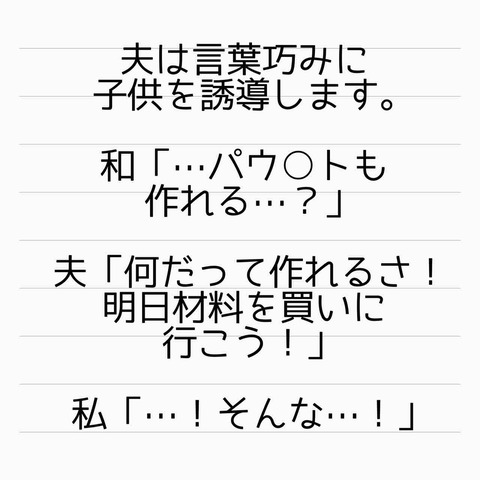 夫は言葉巧みに
子供を誘導します。
和「…パウ○トも
作れる…？」
夫「何だって作れるさ！
明日材料を買いに
行こう！」
私「…！そんな…！」